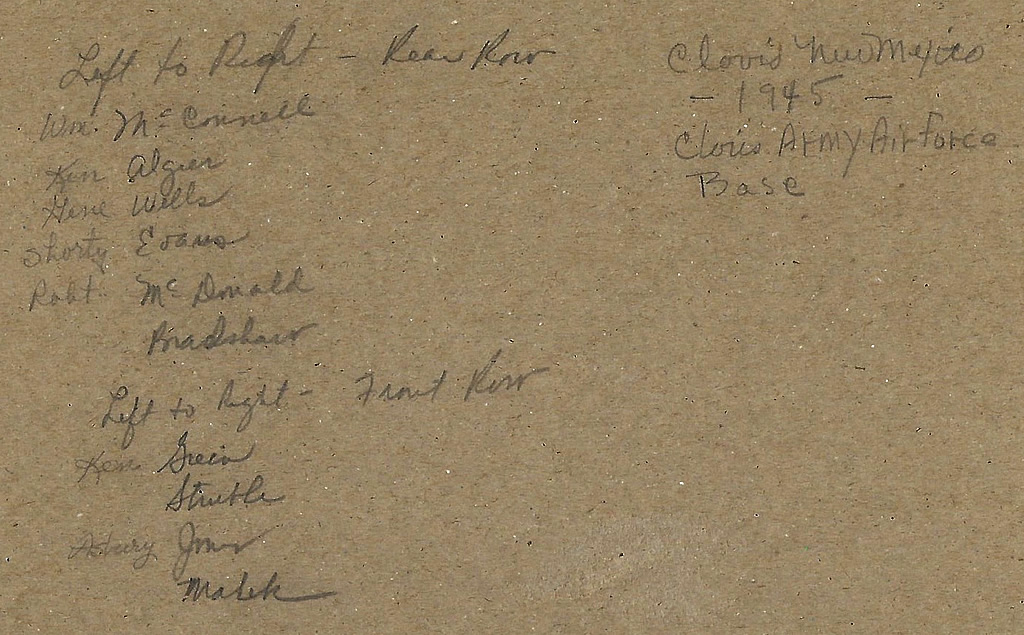 Left to Right - Rear Row
Wm. Mc Connell
Ken Algier
Gene Wells
Shorty Evans
Robt. Mc Donald
Bradshaw
Left to Right - Front Row
Ken
Struble
Asbury Jones
Malek
Clovis New Mexico
- 1945 -
Clovis Army Air Force
Base